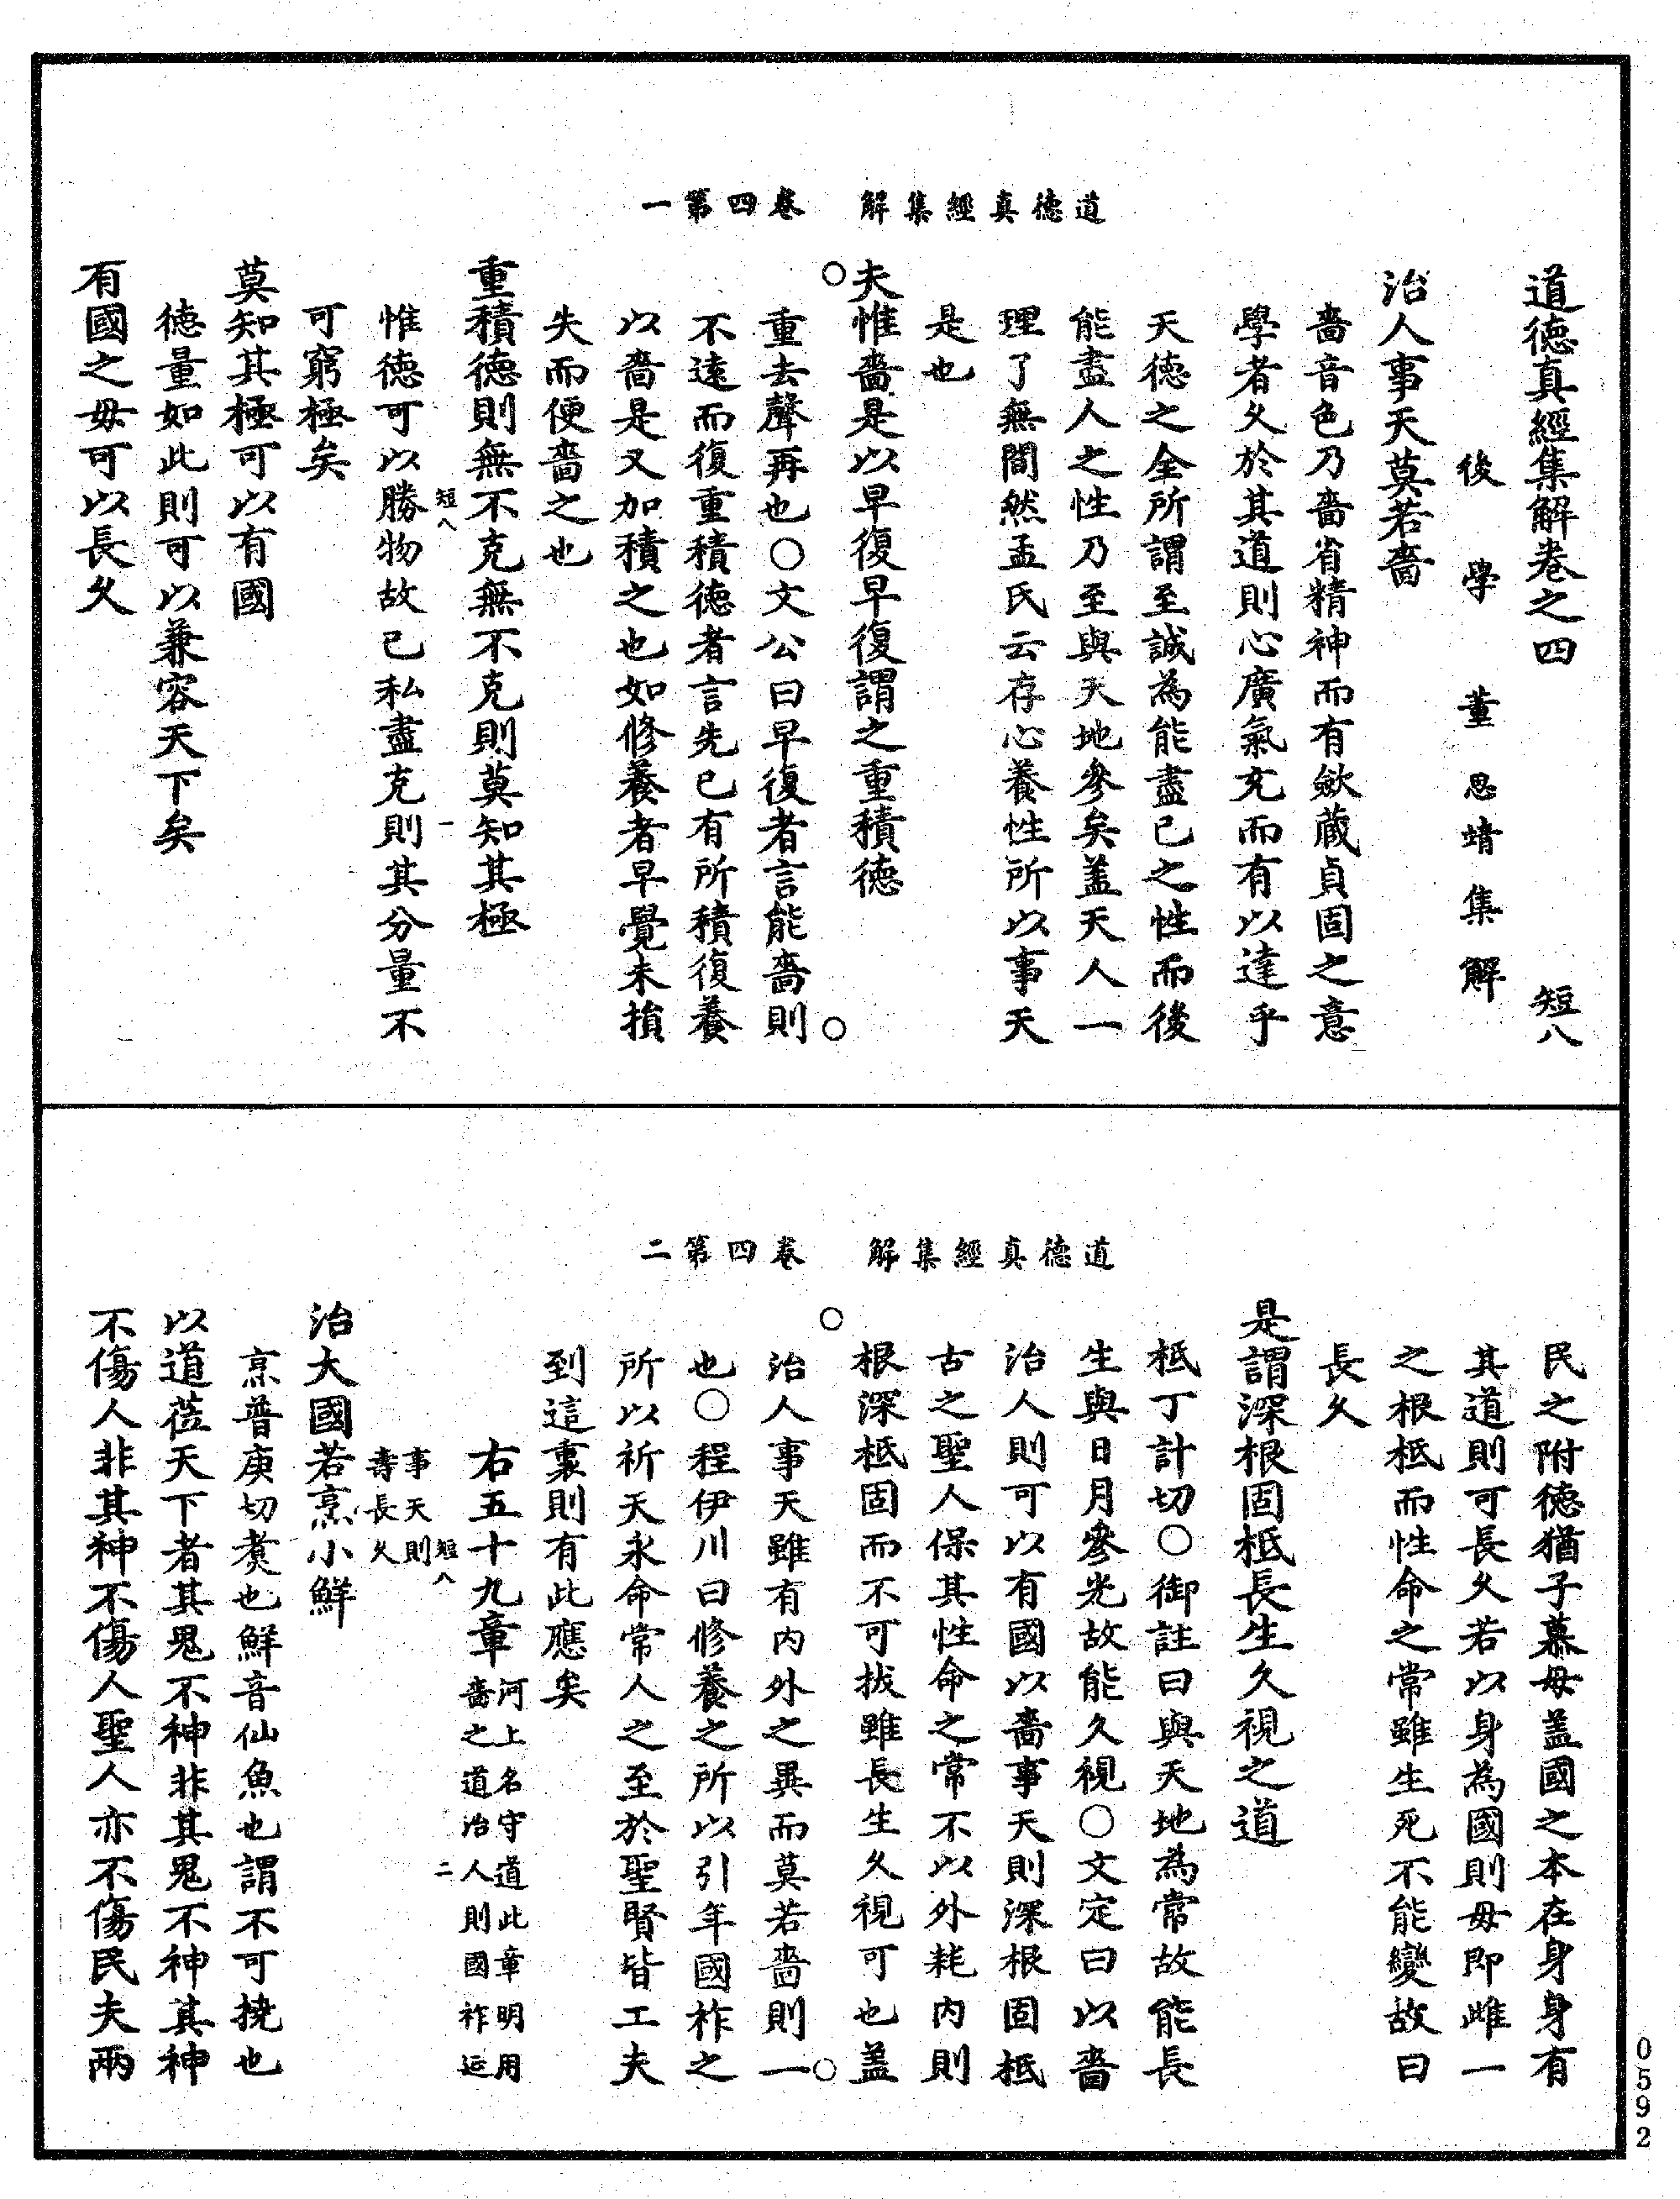 道德真經集解 卷四第一
道德真經集解卷之四 短八
後學董思靖集解
治人事天莫若嗇
嗇音色乃嗇省精神而有斂藏貞固之意
學者久於其道則心廣氣充而有以達乎
天德之全所謂至誠為能盡已之性而後
能盡人之性乃至與天地參矣盖天人一
理了無間然孟氏云存心養性所以事天
是也
夫惟嗇是以早復早復謂之重積德
重去聲再也○文公曰早復者言能嗇則
不遠而復重積德者言先已有所積復養
以嗇是又加積之也如修養者早覺未損
失而便嗇之也
重積德則無不克無不克則莫知其極
短八 一
惟德可以勝物故已私盡克則其分量不
可窮極矣
莫知其極可以有國
德量如此則可以兼容天下矣
有國之毋可以長久
道德真經集解 卷四第二
民之附德猶子慕毋盖國之本在身身有
其道則可長久若以身為國則毋即雌一
之根柢而性命之常雖生死不能變故曰
長久
是謂深根固柢長生久視之道
柢丁計切○御註曰與天地為常故能長
生與日月參光故能久視○文定曰以嗇
治人則可以有國以嗇事天則深根固柢
古之聖人保其性命之常不以外耗內則
根深柢固而不可拔雖長生久視可也盖
治人事天雖有內外之異而莫若嗇則一
也○程伊川曰修養之所以引年國祚之
所以祈天永命常人之至於聖賢皆工夫
到這裏則有此應矣
右五十九章 河上名守道此章明用
嗇之道治人則國祚延
短八 二
事天則
壽長久
治大國若烹小鮮
烹普庚切煑也鮮音仙魚也謂不可撓也
以道莅天下者其鬼不神非其鬼不神其神
不傷人非其神不傷人聖人亦不傷民夫兩
0592